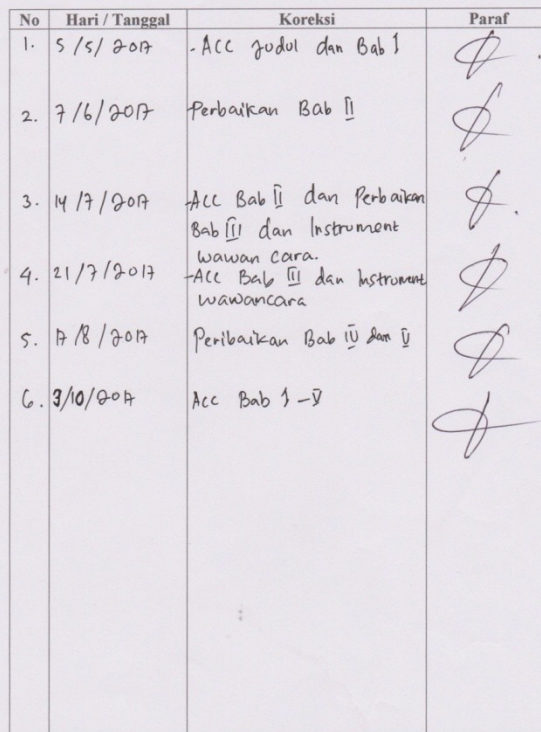 No Hari / Tanggal Koreksi Paraf
1. 5/5/2017 - Acc Judul dan Bab I
2. 7/6/2017 Perbaikan Bab II
3. 14/7/2017 - Acc Bab II dan Perbaikan
Bab III dan Instrument
wawan cara.
4. 21/7/2017 - Acc Bab III dan Instrument
wawancara
5. 17/8/2017 Peribaikan Bab IV dan V
6. 3/10/2017 Acc Bab I - V